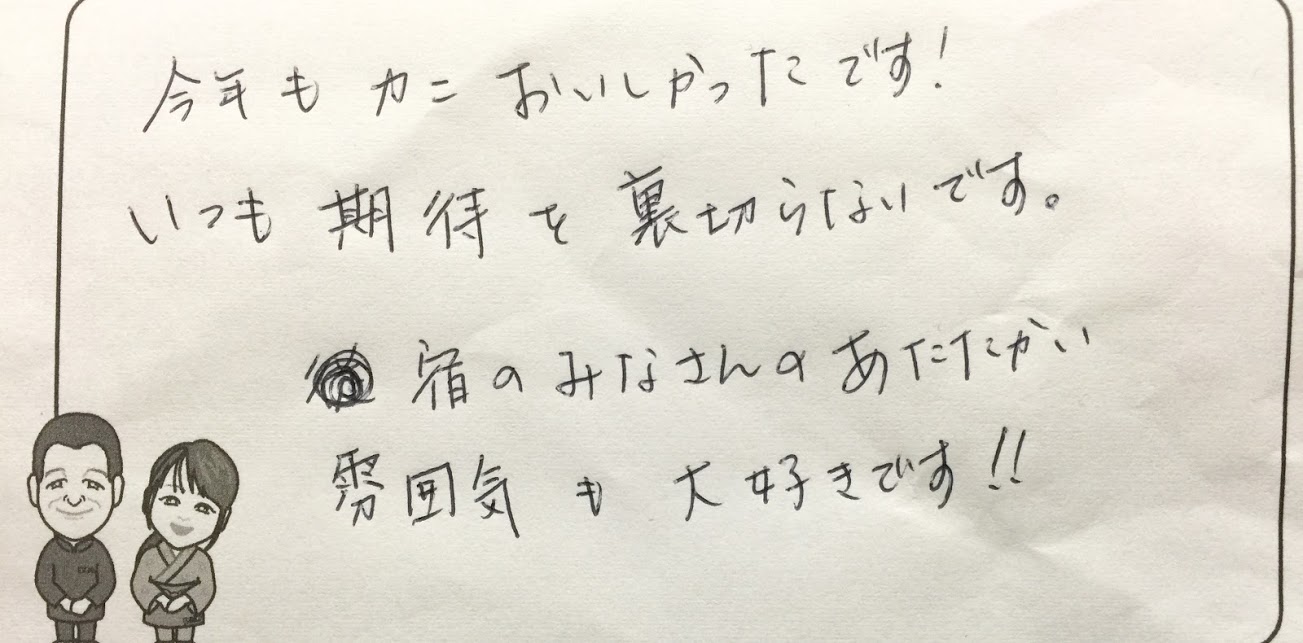 今年もカニおいしかったです!
いつも期待を裏切らないです。
宿のみなさんのあたたかい
雰囲気も大好きです!!